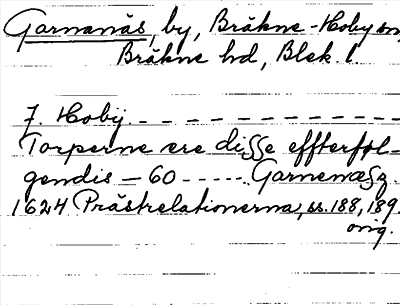 Garnanäs, by, Bräkne-Hoby sn,
Bräkne hd, Blek. l.
J. Hobÿ. – – – – – – – – – – –
Torperne ere disse effterføl-
gendis – 60 – – – – – Garnenæsz.
1624 Prästrelationerna, ss. 188, 189.
orig.